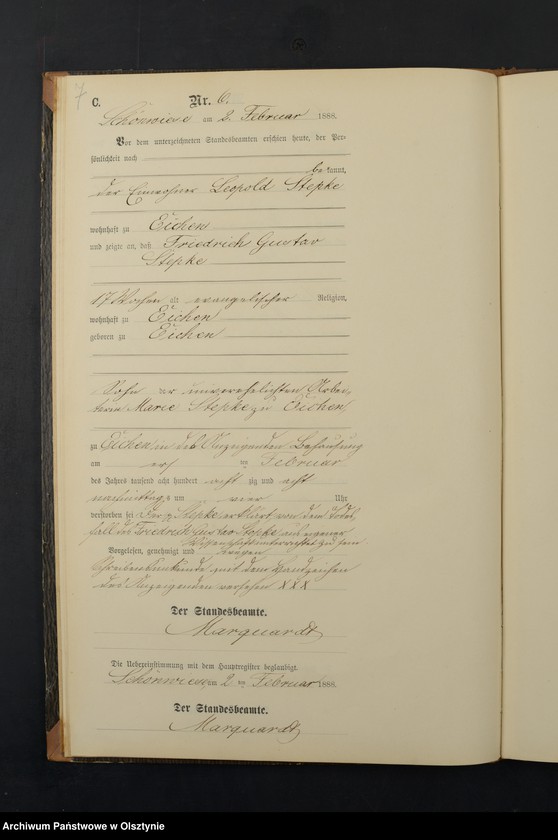 7
C.
Nr. 6.
Schönwiese am 2. Februar 1888.
Vor dem unterzeichneten Standesbeamten erschien heute, der Per-
sönlichkeit nach
bekannt,
der Einwohner Leopold Stepke
wohnhaft zu Eichen
und zeigte an, daß Friedrich Gustav
Stepke
17 Wochen alt evangelischer Religion,
wohnhaft zu Eichen
geboren zu Eichen
Sohn der unverehelichten Arbei-
terin Marie Stepke zu Eichen
zu Eichen in des Anzeigenden Behausung
am Februar
des Jahres tausend acht hundert acht zig und acht
nachmittags um vier Uhr
verstorben sei Der p. Stepke erklärt von dem Todes-
fall des Friedrich Gustav Stepke aus eigener
Wissenschaft unterrichtet zu sein
Vorgelesen, genehmigt und wegen
Schreibensunkunde mit dem Handzeichen
des Anzeigenden versehen XXX
Der Standesbeamte.
Marquardt
Die Uebereinstimmung mit dem Hauptregister beglaubigt.
Schönwiese am 2 ten Februar 1888.
Der Standesbeamte.
Marquardt
Archiwum Państwowe w Olsztynie